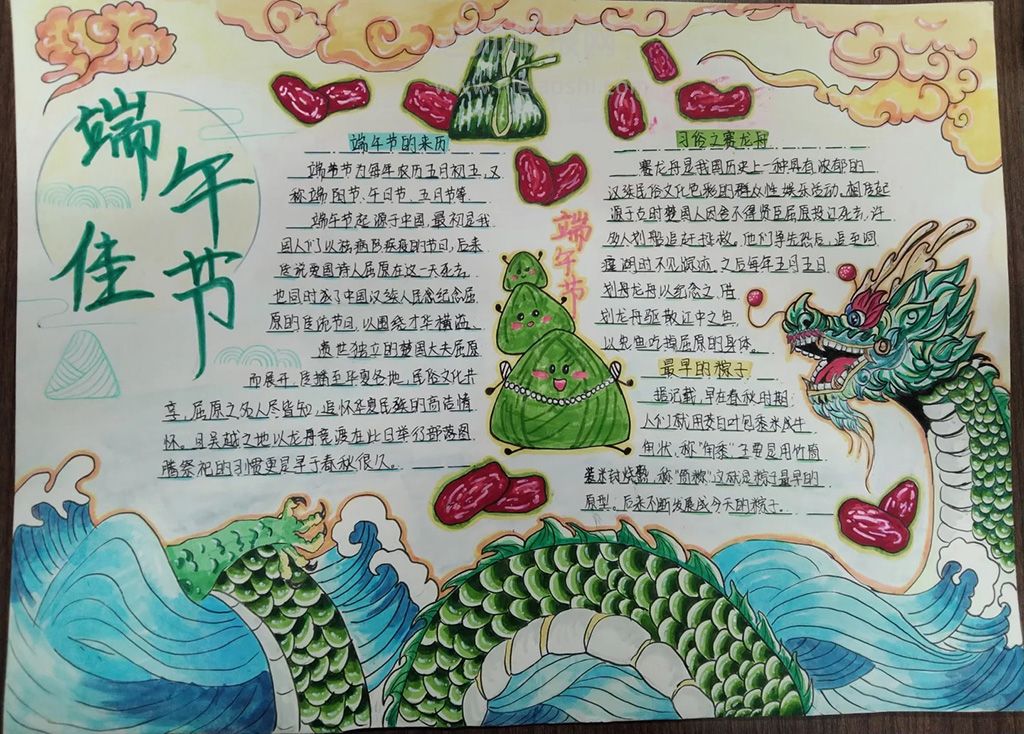 端午节佳
端午节的来历
端午节为每年农历五月初五,又
称端阳节、午日节、五月节等.
端午节起源于中国,最初是我
国人们以祛病防疫的节日,后来
传说爱国诗人屈原在这一天死去,
也同时成了中国汉族人民纪念屈
原的传统节日,以围绕才华横溢、
遗世独立的楚国大夫屈原
而展开,传播至华夏各地,民俗文化共
享,屈原之名人尽皆知,追怀华夏民族的高洁情
怀。且吴越之地以龙舟竞渡在此日举行部落图
腾祭祀的习惯更是早于春秋很久。
端午节
习俗之赛龙舟
赛龙舟是我国历史上一种具有浓郁的
汉族民俗文化色彩的群众性娱乐活动,
源于古时楚国人因舍不得贤臣屈原投江死去,许
多人划船追赶拯救。他们争先恐后,追至洞
庭湖时不见踪迹,之后每年五月五日
划龙舟以纪念之。借
划龙舟驱散江中之鱼,
以免鱼吃掉屈原的身体。
最早的粽子
据记载,早在春秋时期,
人们就用茭白叶包黍米成牛
角状,称"角黍",主要是用竹筒
装米封烧熟,称"筒粽",这就是粽子最早的
原型。后来不断发展成今天的粽子.